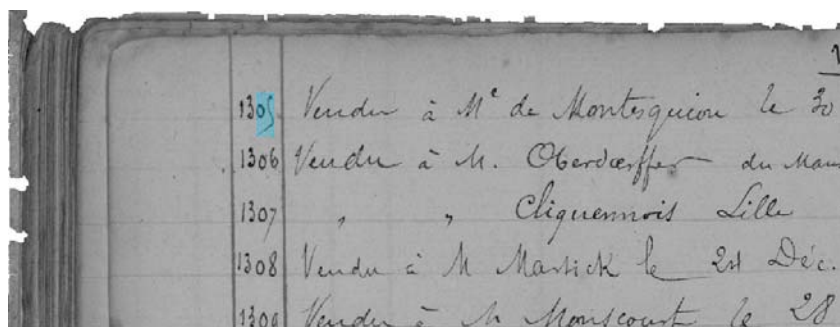 1305 Vendu à Me de Montesquiou le 30
1306 Vendu à M. Oberdœrffer du Mans
1307 " " Cliquennois Lille
1308 Vendu à M Mastick le 24 Déc.
1309 Vendu à M Monscourt le 28